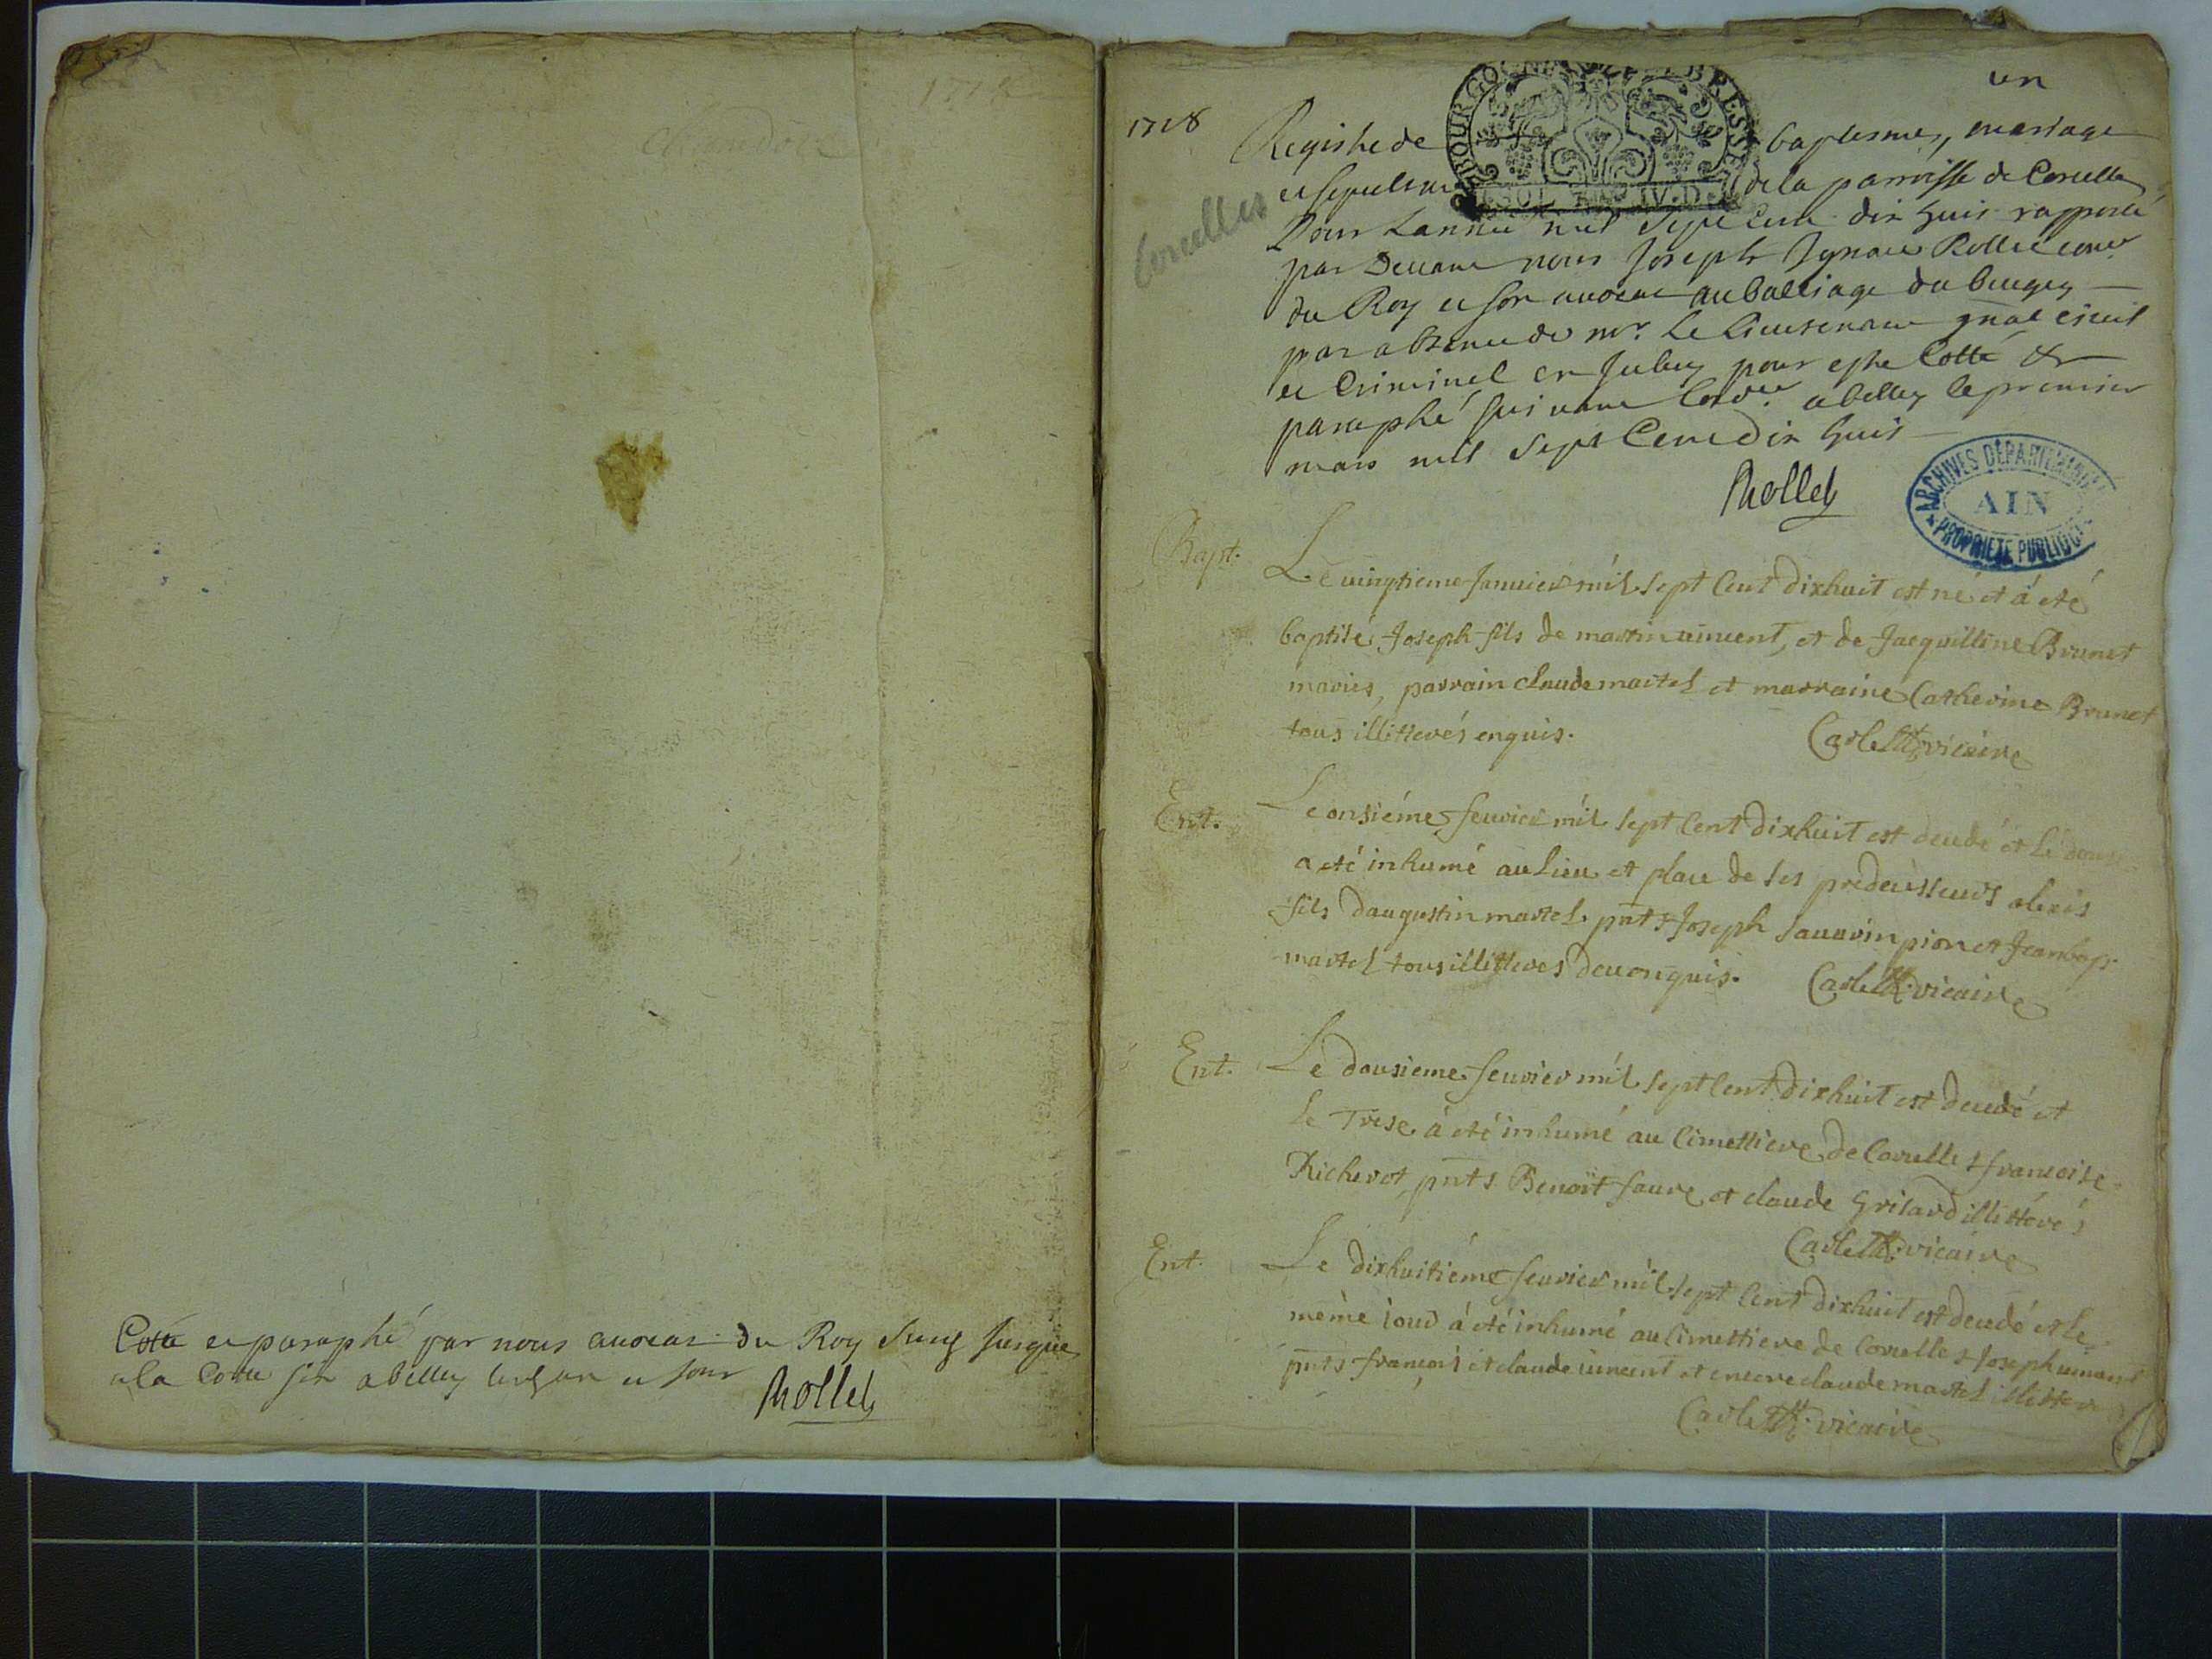 1718
Cotté et paraphé par nous auocat du Roy Suiy jusque
a la Cotte six a belley lesd an et jour
Rollet
un
1718
Registre de baptesmes, mariage
et sepulture de la parroisse de Corcelles
Corcelles
Pour Lannée mil Sept Cent dix huit rapporté
par Deuant nous Joseph Ignace Rollet conr
du Roy et son auocat au balliage du bugey
par absence de mr. Le Lieutenant gnal ciuil
et Criminel pour estre Cotté &
paraphé suiuant Lordce a belley le premier
mars mil Sept Cent dix huit
Rollet
BOURGOGNE BRESSE
IV.D.
ARCHIVES DÉPARTEMENTALES
AIN
PROPRIÉTÉ PUBLIQUE
Bapt. Le uingtieme Januier mil sept Cent dixhuit est né et á eté
baptisé Joseph fils de martin uincent, et de Jacquilline Brunet
mariés, parrain claude martel et marraine Catherine Brunet
tous illitterés enquis. Carlett vicaire
Ent. Le onsiéme feurier mil sept Cent dixhuit est decedé et le dous
a eté inhumé au Lieu et place de ses predecesseurs alexis
fils daugustin martel pnts Joseph sauurin pion et Jeanbap.
martel tous illitteres deuenquis. Carlett. vicaire
Ent. Le dousieme feurier mil sept Cent dixhuit est decedé et
le Trese á eté inhumé au Cimettiere de Corcelles francoise
Richerot, pnts Benoit faure et claude Grisard illitterés
Carlett. vicaire
Ent. Le dixhuitiéme feurier mil sept Cent dixhuit est decedé et le
même iour á eté inhumé au Cimettiere de Corcelles Joseph uincent
pnts francois et claude uincent et encore claude martel illitter
Carlett. vicaire